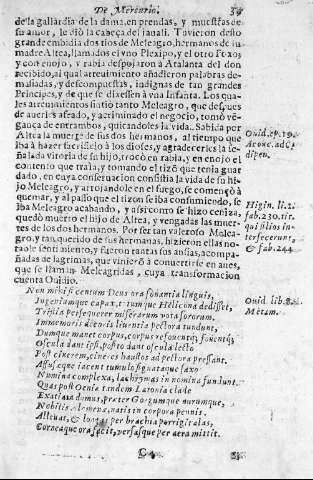 De Mercurio.
de la gallardia de la dama, en prendas, y muestras de
su amor, le dió la cabeça del jauali. Tuuieron desto
grande embidia dos tios de Meleagro, hermanos de su
madre Altea, llamados el vno Plexipo, y el otro
y con enojo, y rabia despojaron a Atalanta del don
recibido, al qual atreuimiento añadieron palabras de-
masiadas, y descompuestas, indignas de tan grandes
Principes, y de que se dixessen à vna Infanta. Los qua-
les atreuimientos sintio tanto Meleagro, que despues
de auerles afeado, y acriminado el negocio, tomó vē-
gança de entrambos, quitandoles la vida. Sabida por
Altea la muerte de sus dos hermanos, al tiempo que
iba à hazer sacrificio à los dioses, y agradecerles la se-
ñalada vitoria de su hijo, trocò en rabia, y en enojo el
contento que traía, y tomando el tizō que tenia guar-
dado, en cuya conseruacion consistia la vida de su hi-
jo Meleagro, y arrojandole en el fuego, se començò à
quemar, y al passo que el tizon se iba consumiendo, se
iba Meleagro acabando, y assi como se hizo ceniza,
quedò muerto el hijo de Altea, y vengadas las muer-
tes de los dos hermanos. Por ser tan valeroso Melea-
gro, y tan querido de sus hermanas, hizieron ellas no-
table sentimiento, y fueron tantas sus ansias, acompa-
ñadas de lagrimas, que vinierō à conuertirse en aues,
que se llaman Meleagridas, cuya transformacion
cuenta Ouidio.
Non mihi si centum Deus ora sonantia linguis,
Ingeniumque capax, totumque Helicona dedisset,
Tristia persequerer miserarum vota sororum.
Immemores decoris liuentia pectora tundunt,
Dumque manet corpus, corpus refouentq; fouentq;
Oscula dant ipsi, posito dant oscula lecto
Post cinerem, cineres haustos ad pectora pressant.
Affusæque iacent tumulo signataque saxo
Nomina complexa, lachrymas in nomina fundunt.
Quas post Oenia tandem Latonia clade
Exatiata domus, præter Gorgumque nurumque,
Nobilis Alcmenæ, natis in corpora pennis.
Alleuat, & longas per brachia porrigit alas,
Corneaque ora facit, versasque per aera mittit.
C 4
Ouid. ep. 19.
Higin. li. 2.
fab. 230. tit.
qui filios in-
terfecerunt,
& fab. 244
Ouid. lib. 8.
Metam.